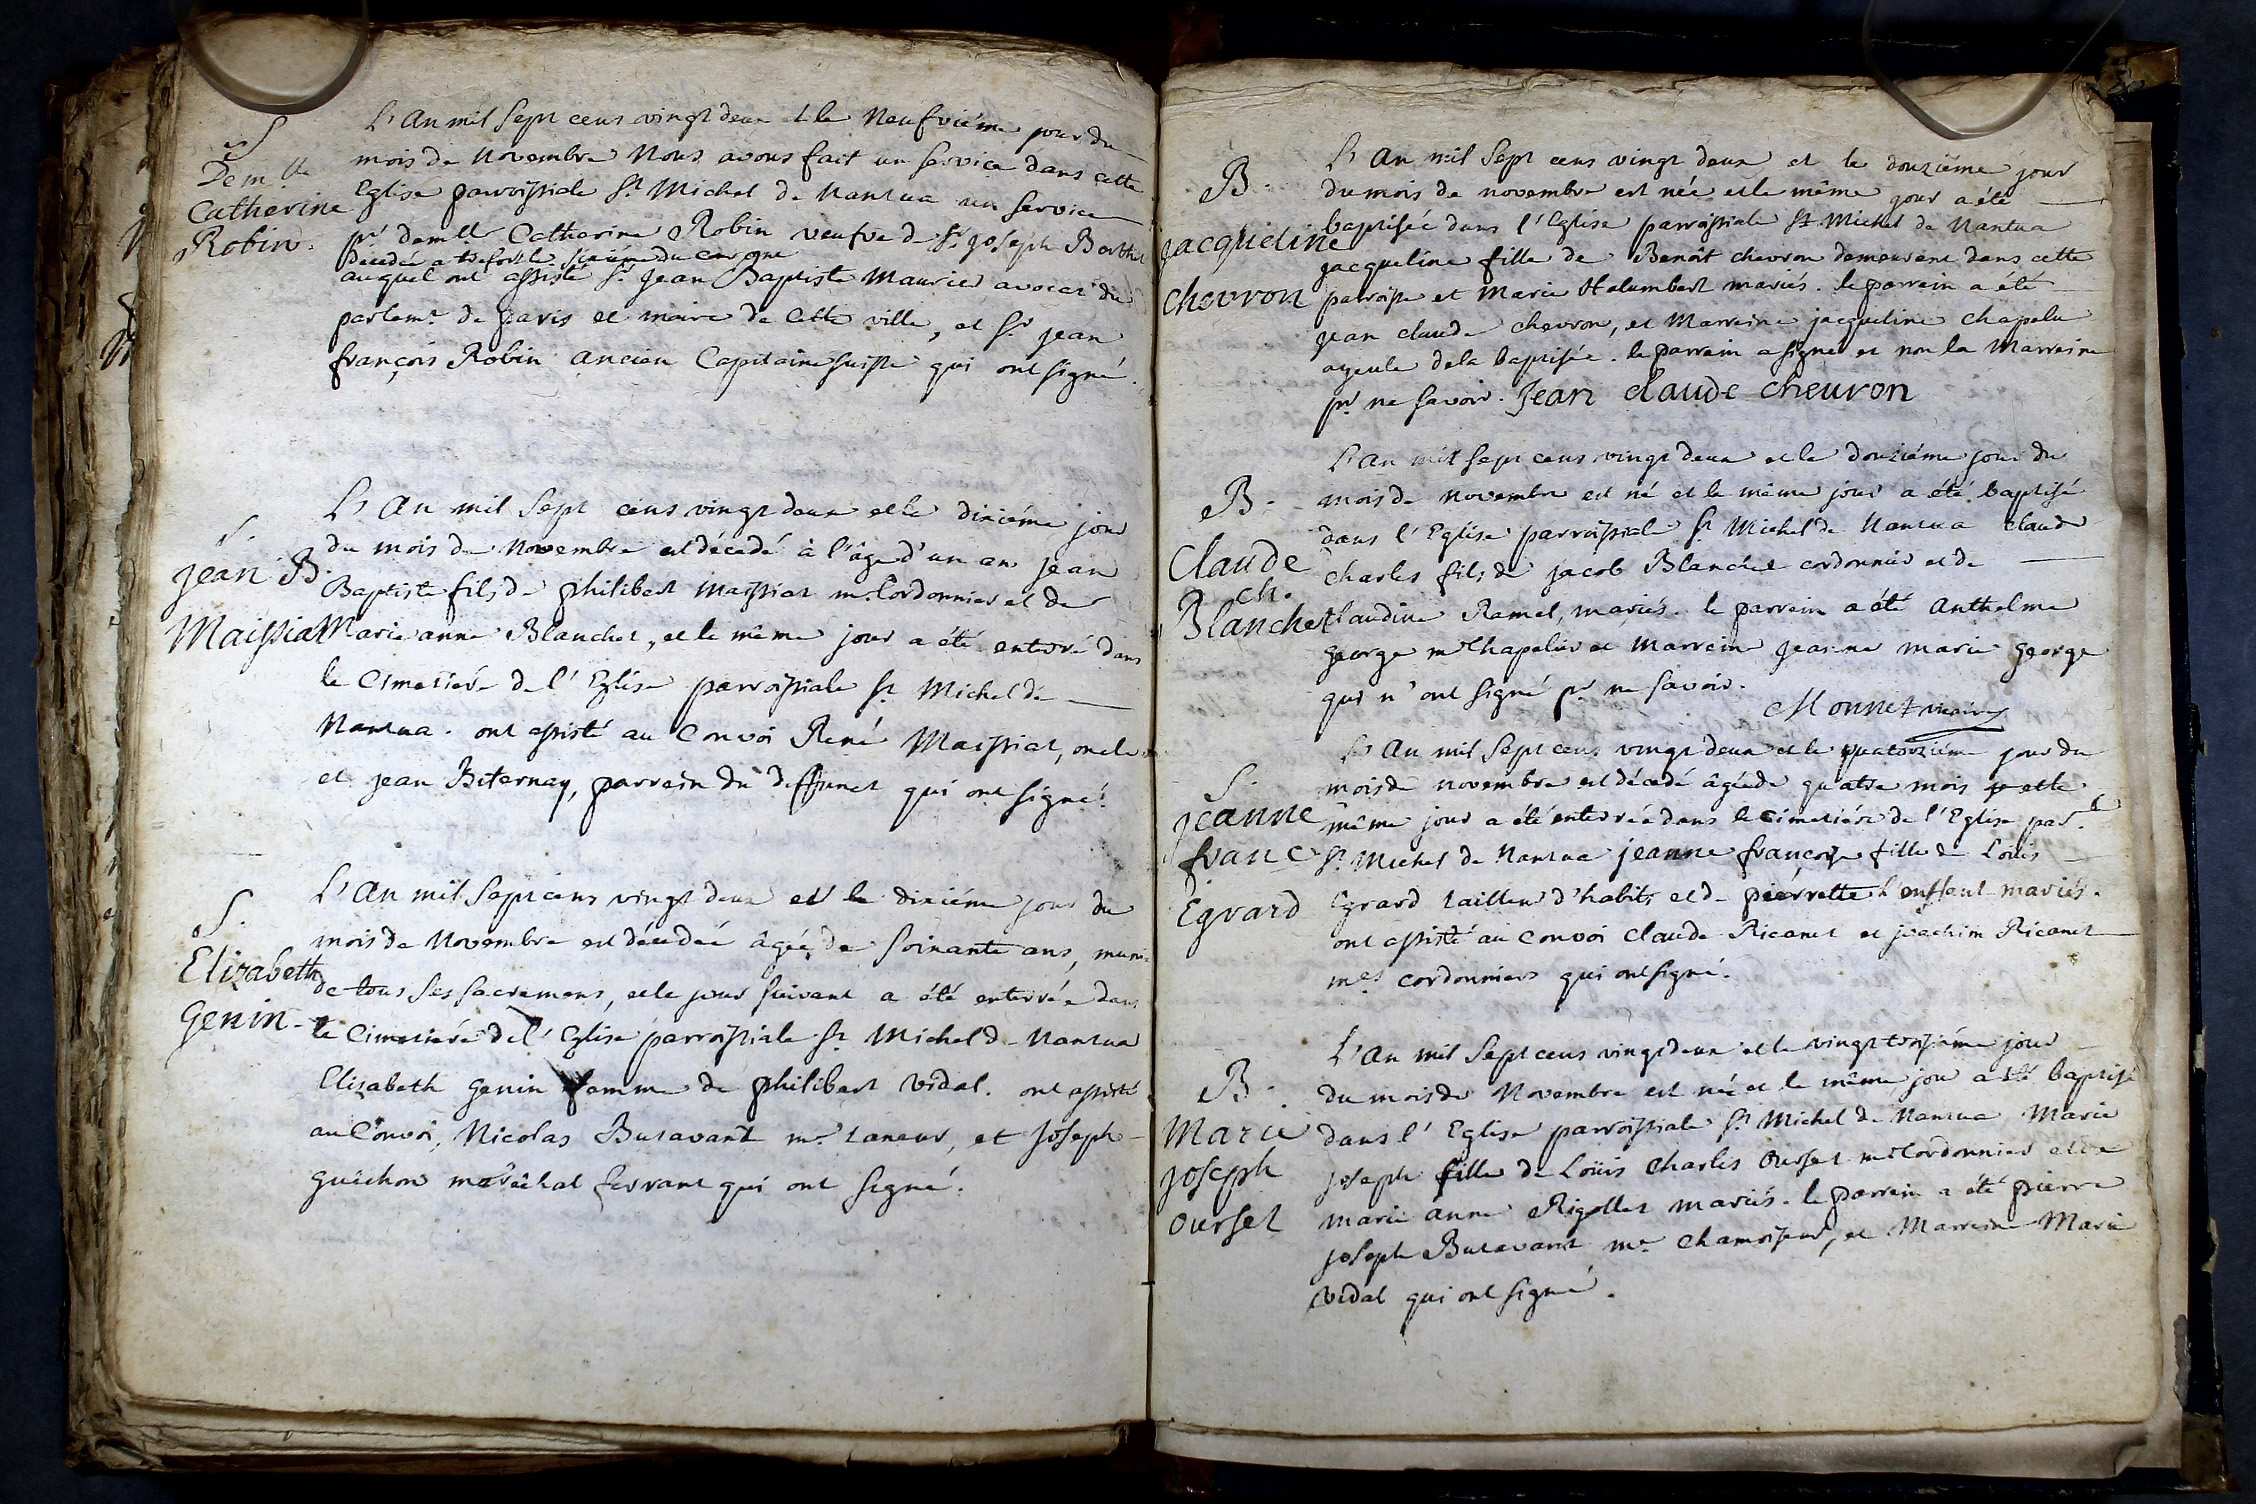 S
Dem.lle
Catherine
Robin.
L'An mil sept cens vingt deux et le Neufviéme jour du
mois de Novembre Nous avons fait un service dans cette
Eglise parroissiale St Michel de Nantua un service
pr demlle Catharine Robin veufve de Sr joseph
Décédée a le du courant
auquel ont assisté Sr Jean Baptiste Maurier avocat du
parlemt de paris et maire de Cette ville, et Sr jean
françois Robin ancien Capitaine suisse qui ont signé.
S.
jean B.
Maissiat
L'An mil Sept cens vingt deux et le dixiéme jour
du mois de Novembre est décedé à l'âge d'un an jean
Baptiste fils de philibert maissiat mre Cordonnier et de
Marie anne Blanchet, et le même jour a été enterré dans
le Cimetiére de l'Eglise parroissiale St Michel de
Nantua. ont assisté au Convoi René Maissiat, oncle
et jean Biternay, parrein du deffunct qui ont signé.
S.
Elizabeth
Genin.
L'An mil Sept cens vingt deux et le dixiéme jour du
mois de Novembre est décedeé âgée de soixante ans, munie
de tous ses sacremens, et le jour suivant a été enterrée dans
le Cimetiére de l'Eglise parroissiale St Michel de Nantua
Elisabeth genin femme de philibert vidal. ont assisté
au Convoi, Nicolas Butavant mre taneur, et Joseph
guichon maréchal ferrant qui ont signé.
B.
jacqueline
chevron
L'An mil Sept cens vingt deux et le douziéme jour
du mois de novembre est née et le même jour a été
baptisée dans l'Eglise parroissiale St Michel de Nantua
jacqueline fille de Benoît chevron demeurant dans cette
parroisse et Marie Halumbert mariés. le parrein a été
jean claude chevron, et Marreine jacqueline chapelu
ayeule dela baptisée. le parrein a signé et non la Marreine
pr ne savoir. Jean claude cheuron
B.
Claude
ch.
Blanchet
L'an mil sept cens vingt deux et le douziéme jour du
mois de novembre est né et le même jour a été baptisé
dans l'Eglise parroissiale St Michel de Nantua Claude
charles fils de jacob Blanchet cordonnier et de
Claudine Ramel, mariés. le parrein a été Anthelme
george mre Chapelier et Marrein jeanne marie george
qui n'ont signé pr ne savoir.
Monnet vicaire
S.
jeanne
franc
Egrard
L'An mil Sept cens vingt deux et le quatorziéme jour du
mois de novembre est décedé âgée de quatre mois et le
même jour a été enterrée dans le cimetiére de l'Eglise par.le
St Michel de Nantua jeanne françoise fille de Loüis
Egrard tailleur d'habits et de pierrette L'enffent mariés.
ont assisté au Convoi claude Ricanet et joachim Ricanet
mes cordonniers qui ont signé.
B.
Marie
joseph
ourset
L'An mil Sept cens vingt deux et le vingt troisiéme jour
du mois de Novembre est née et le même jour a été baptisé
dans l'Eglise parroissiale St Michel de Nantua Marie
joseph fille de Loüis Charles Ourset mre Cordonnier et de
marie anne Rigollet mariés. le parrein a été pierre
joseph Butavant mre chamoiseur, et Marreine Marie
vidal qui ont signé.